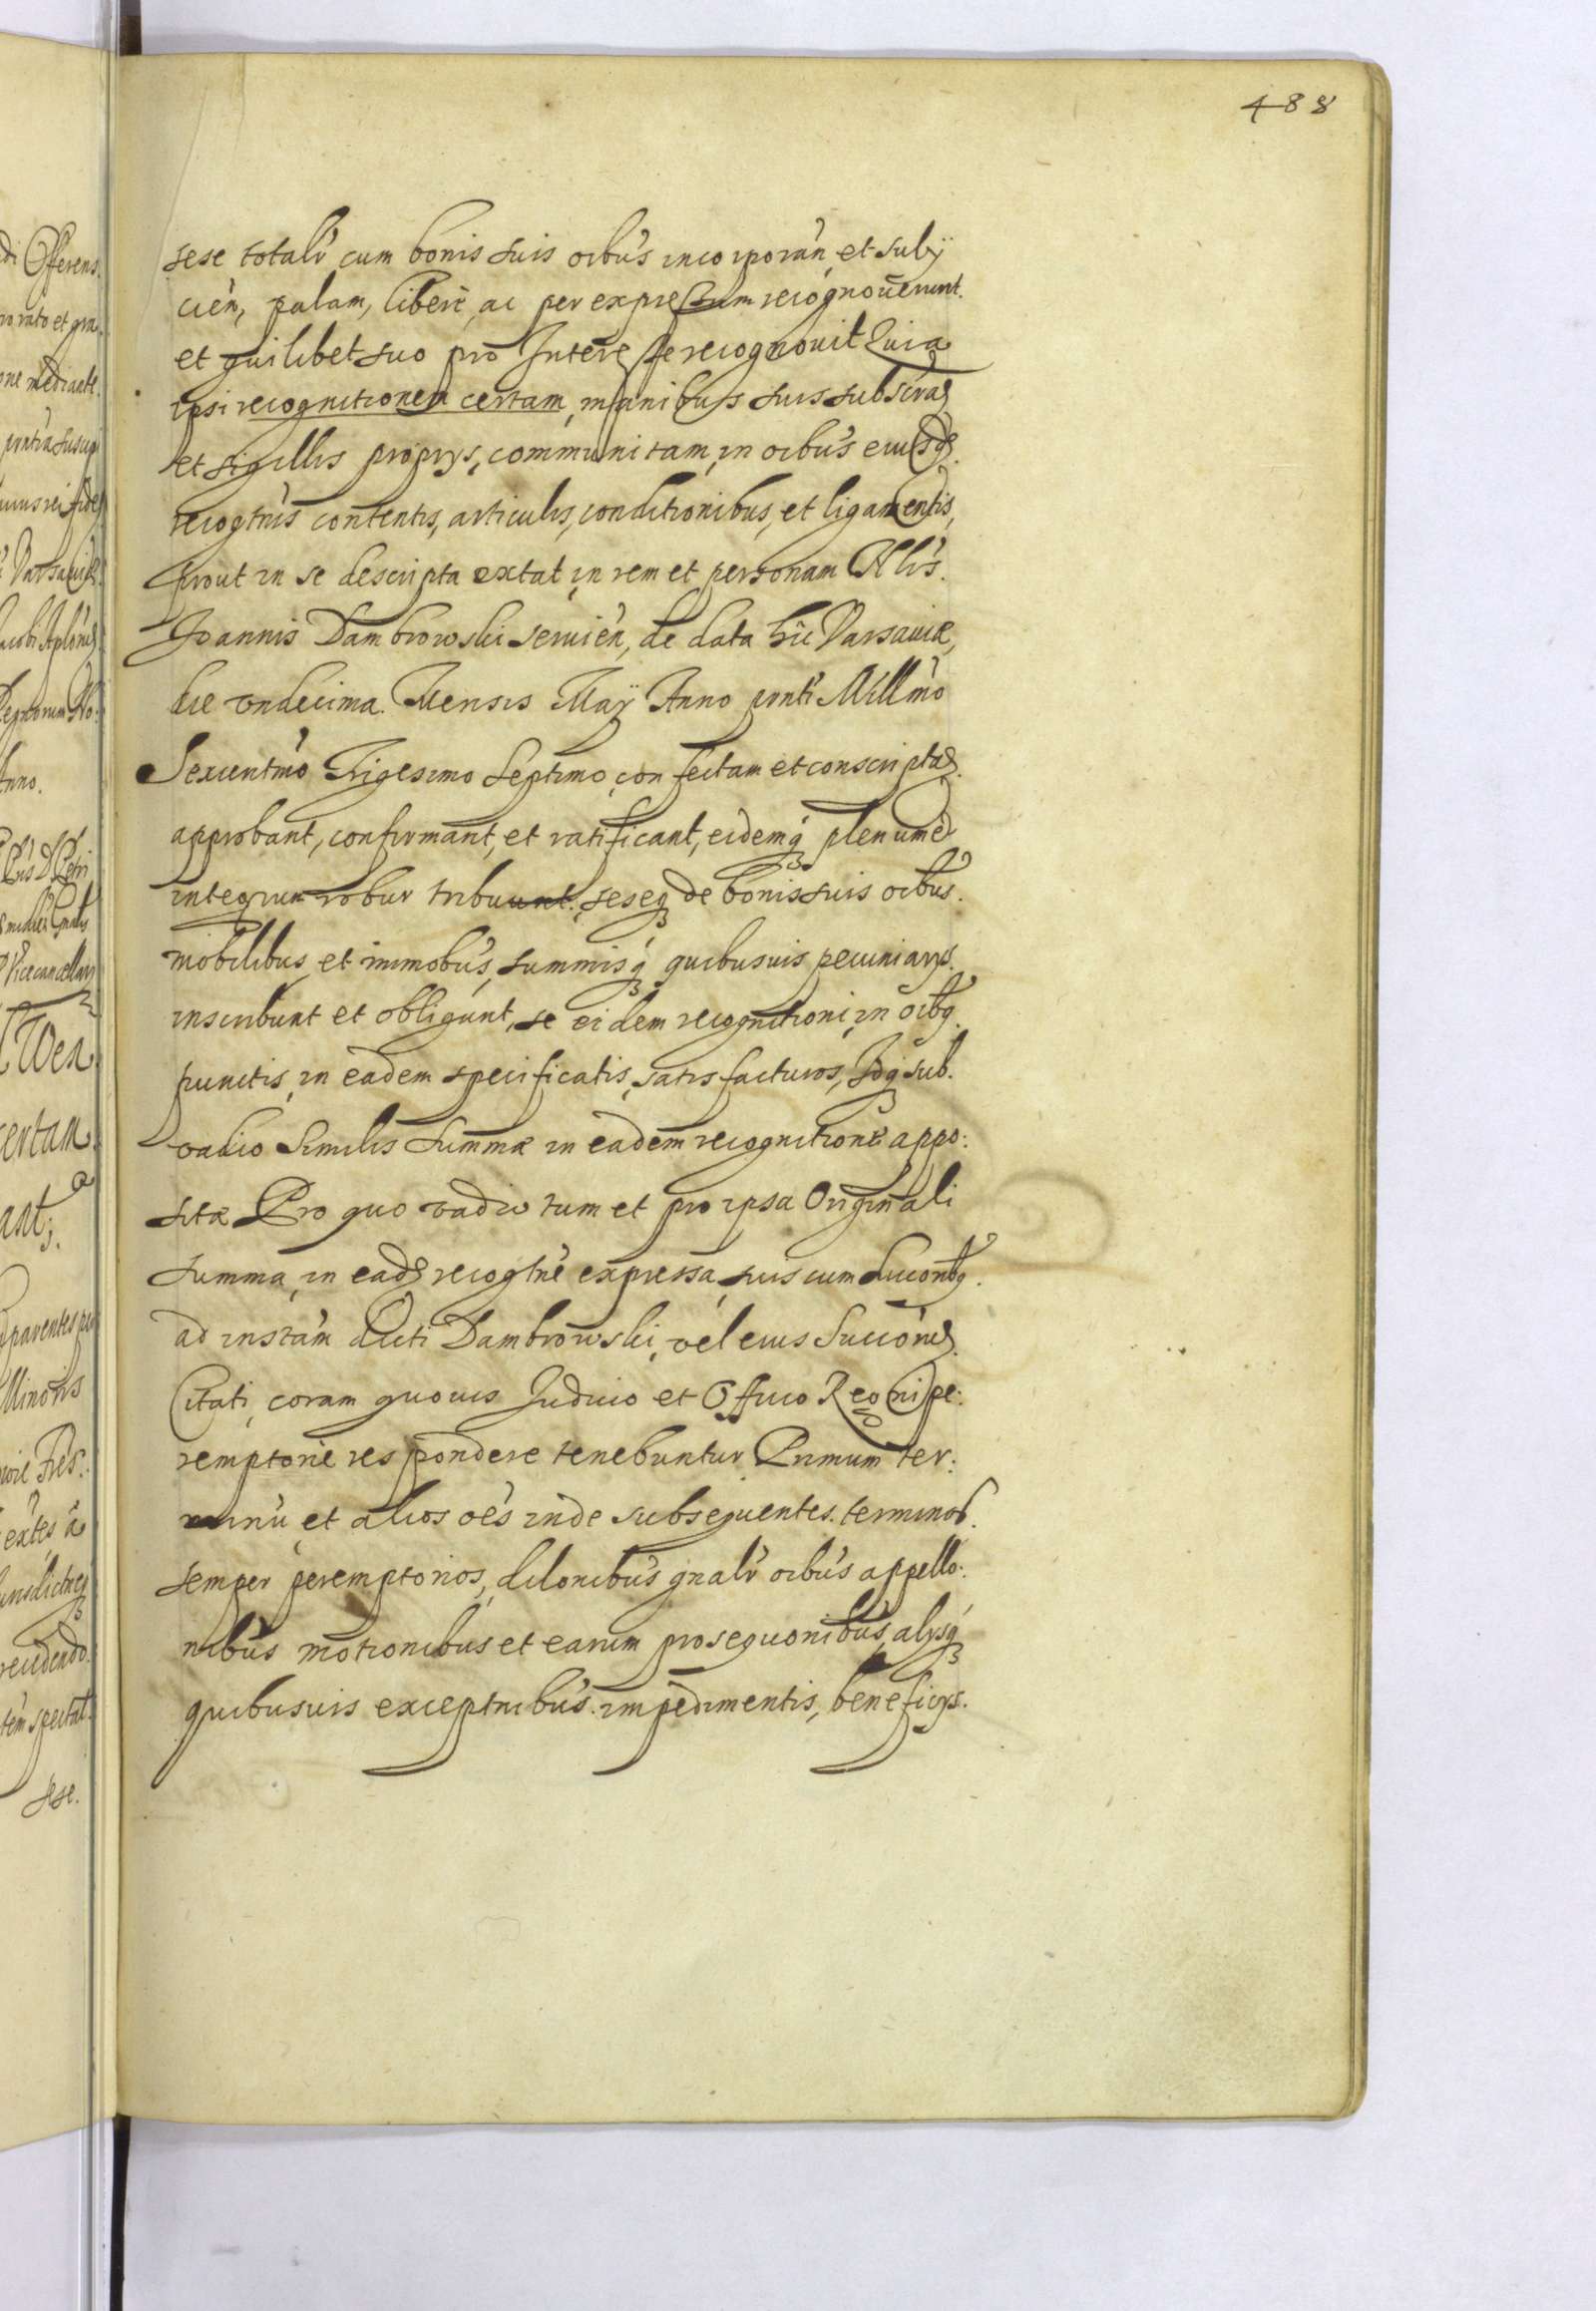 488
sese totalr cum bonis suis oibus incorporan, et subij
cien, palam, libere, ac per expressum recognoverunt.
et quilibet suo pro Interesse recognovit Quia
ipsi recognitionem certam, manibus suis subscrat
et sigillis proprys, communitam, in oibus eiusd
recogtnis contentis, articulis, conditionibus, et ligamentis,
prout in se descripta extat, in rem et personam Nlis.
Joannis Dambrowski servien, de data hic Varsaviæ,
die vndecima Mensis Maÿ Anno pnti Millmo
Sexcentmo Trigesimo Septimo, confectam et conscripta
approbant, confirmant, et ratificant, eidemq plenum et
integrum robur tribuunt. seseq de bonis suis oibus.
mobilibus, et immobus, summisq quibusvis pecuniarys.
inscribunt et obligunt, se eidem recognitioni, in oibq
punctis, in eadem specificatis, satisfacturos, Idq sub.
vadio similis summæ in eadem recognitione appo:
sitæ Pro quo vadio tum et pro ipsa Originali
summa, in ead recogtne expressa, suis cum succonibq.
ad instam dicti Dambrowski, vel eius Succorum
Citati, coram quovis Judicio et Officio Regni pe:
remptorie respondere tenebuntur Primum ter:
minu et alios oes inde subsequentes terminos.
semper peremptorios, dilonibus gnalr oibus appello:
nibus motionibus et earum prosequonibus, alysq
quibusvis exceptnibus. impedimentis, beneficys.
di Offerens.
ro rato et gra.
Varsaviæ
Anno.
Vicecancellary
certam
Minoris
sese.